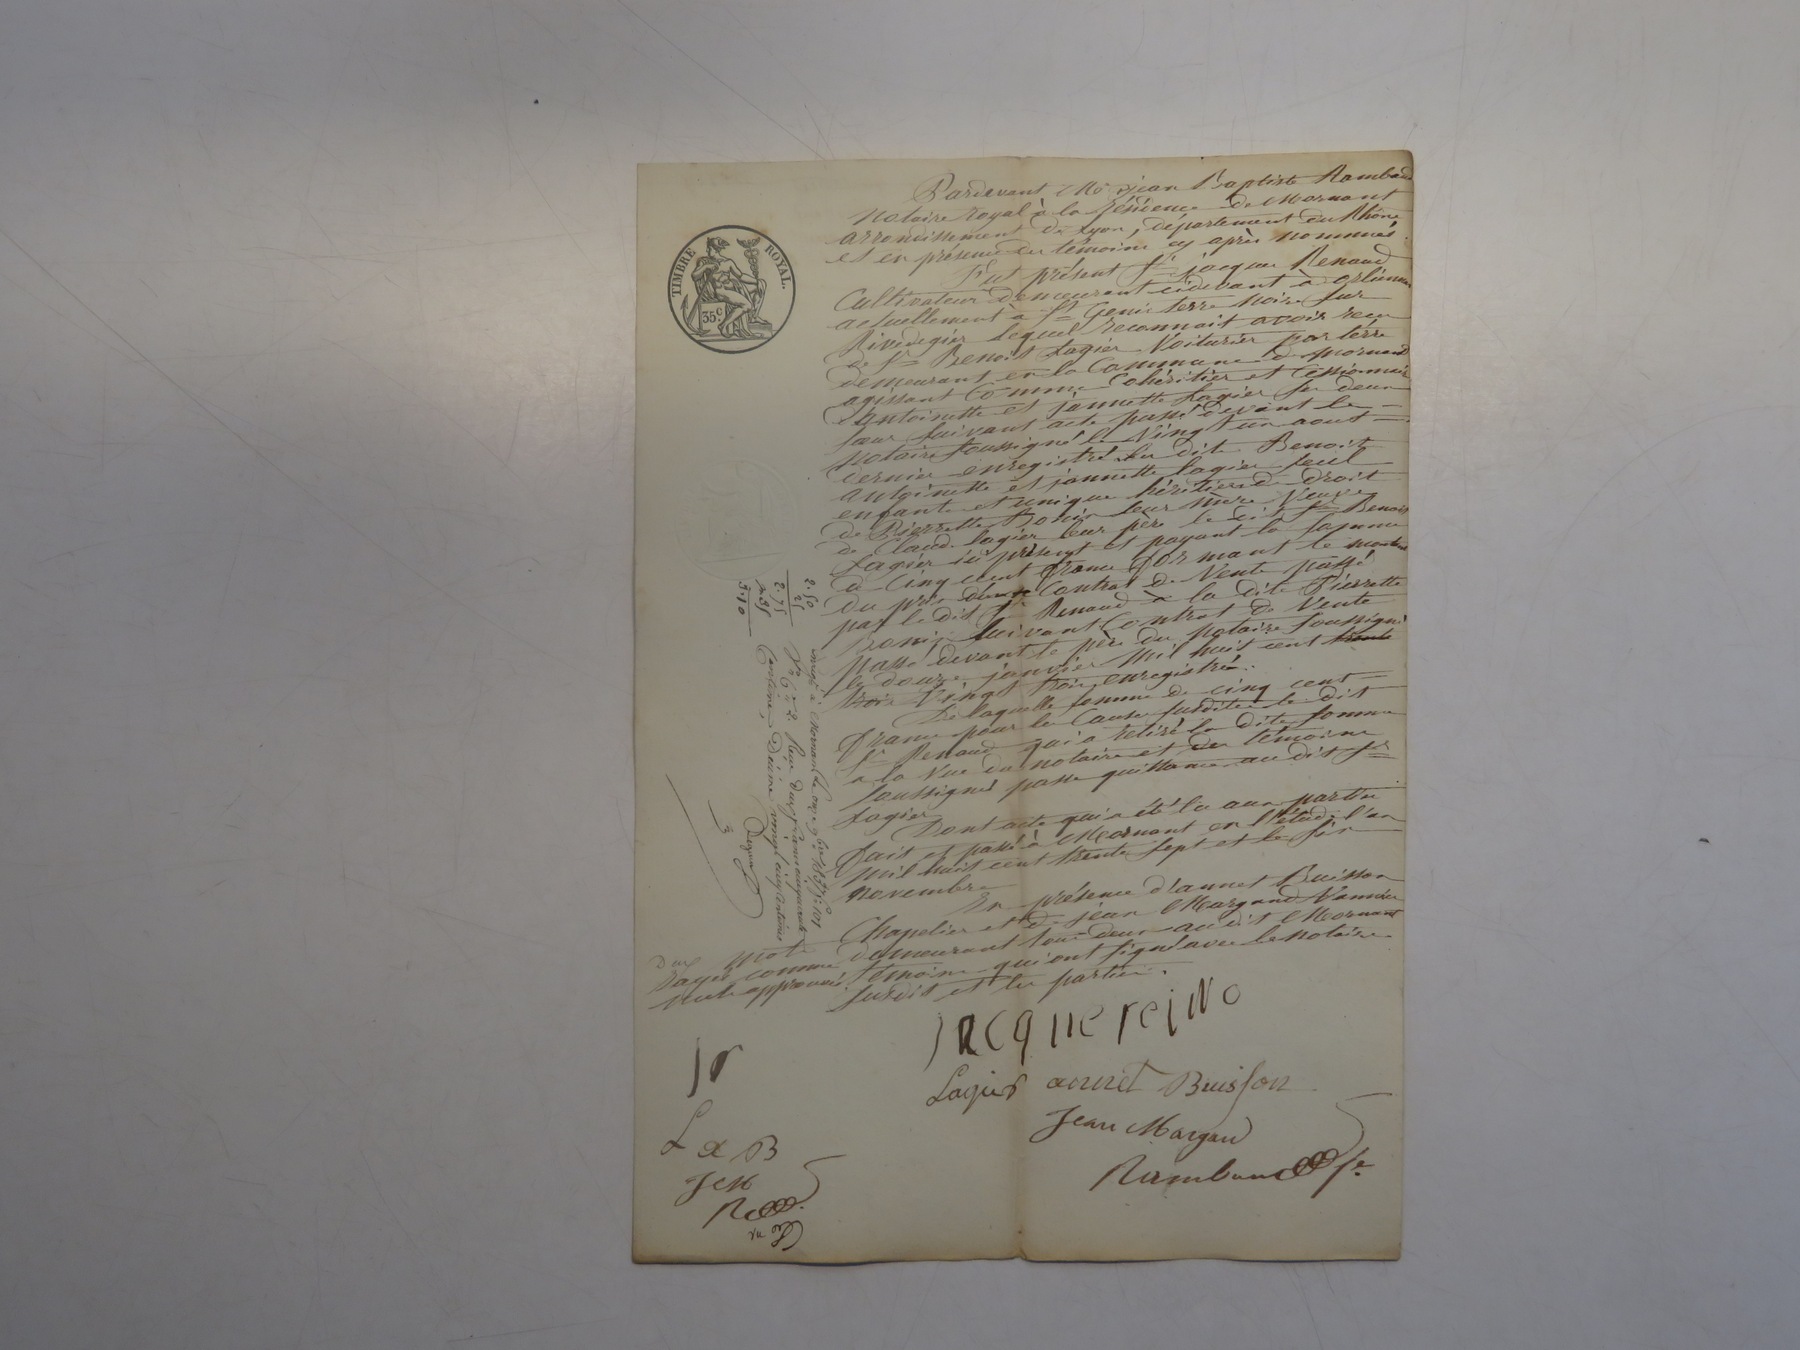 TIMBRE ROYAL.
35c
Pardevant Me jean Baptiste Rambaud
Notaire royal à la résidence de Mornant
arrondissement de Lyon, département du Rhône
et en présence des témoins cy après nommés.
Fut présent Sr jacque Renaud
Cultivateur demeurant cidevant à orliénas
actuellement à St Genis terre noire sur
Rivedegier lequel reconnait avoir recu
de Sr Benoit Lagier Voiturier par terre
demeurant en la Commune de mornant
agissant Comme Cohéritier et Cessionnaire
d'antoinette et jannette Lagier ses deux
sœur suivant acte passé devant le
notaire soussigné le Vingt un aout
dernier enregistré les dits Benoit
antoinette et jannette lagier seul
enfants et unique héritiers de droit
de Pierrette Bonin leur Mère Veuve
de Claude lagier leur père le dit Sr Benoit
Lagier ici présent et payant la somme
de Cinq cent franc formant le montant
du prix Contrat de Vente passé
par le dit Sr Renaud à la dite Pierrette
Bonin suivant Contrat de Vente
passé devant le père du notaire soussigné
le douze janvier mil huit cent trente
trois Vingt trois enregistré.
De laquelle somme de cinq cent
franc pour les Cause susdites le dit
Sr Renaud qui a retiré la dite somme
a la Vue du notaire et des témoins
soussignés passe quittance au dit Sr
Lagier
Dont acte qui a été lu aux parties
fait et passé à Mornant en l'étude l'an
mil huit cent trente sept et le six
novembre
En présence d'annet Buisson
Chapelier et de jean Margand Vannier
demeurant tous deux au dit Mornant
témoins qui ont signé avec le notaire
susdit et les parties.
Deux mots
rayés comme
nuls approuvés
2.50
25
2.75
35
3.10
à Mornant le onze 9bre 1837 fo 101
Ro Co 2 Reçu deux francs cinquante
Centimes, Décime vingt cinq centimes
jacque rejno
Lagier annet Buisson
Jean Margand
Rambaud
Jr
L a B
JM
R